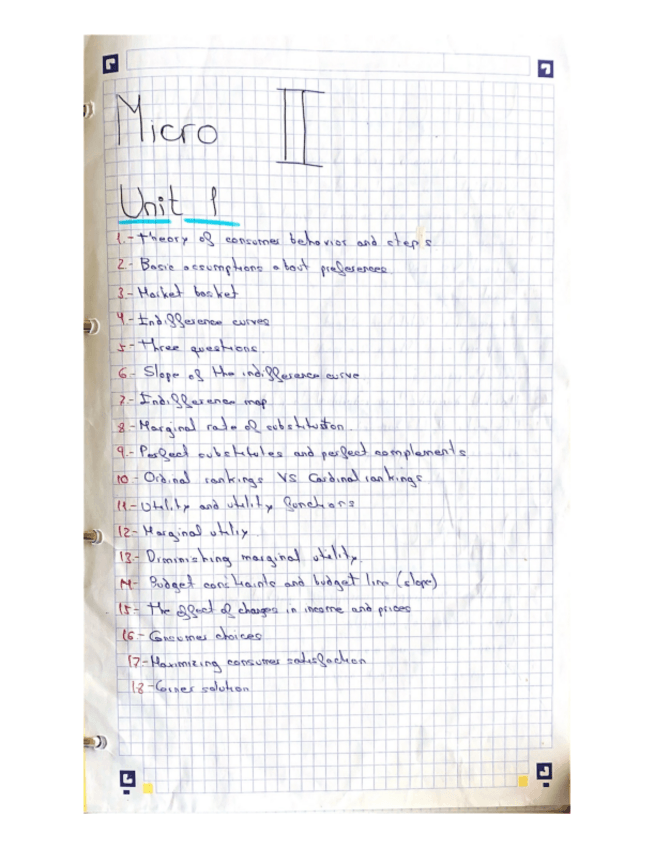 Micro II
Unit 1
1.- Theory of consumer behavior and steps
2.- Basic assumptions about preferences
3.- Market basket
4.- Indifference curves
5.- Three questions.
6.- Slope of the indifference curve
7.- Indifference map
8.- Marginal rate of substitution
9.- Perfect substitutes and perfect complements
10.- Ordinal rankings VS Cardinal rankings
11.- Utility and utility functions
12.- Marginal utiliy
13.- Diminishing marginal utility.
14.- Budget constraints and budget line (slope)
15.- The effect of changes in income and prices
16.- Consumer choices
17.- Maximizing consumer satisfaction
18.- Corner solution